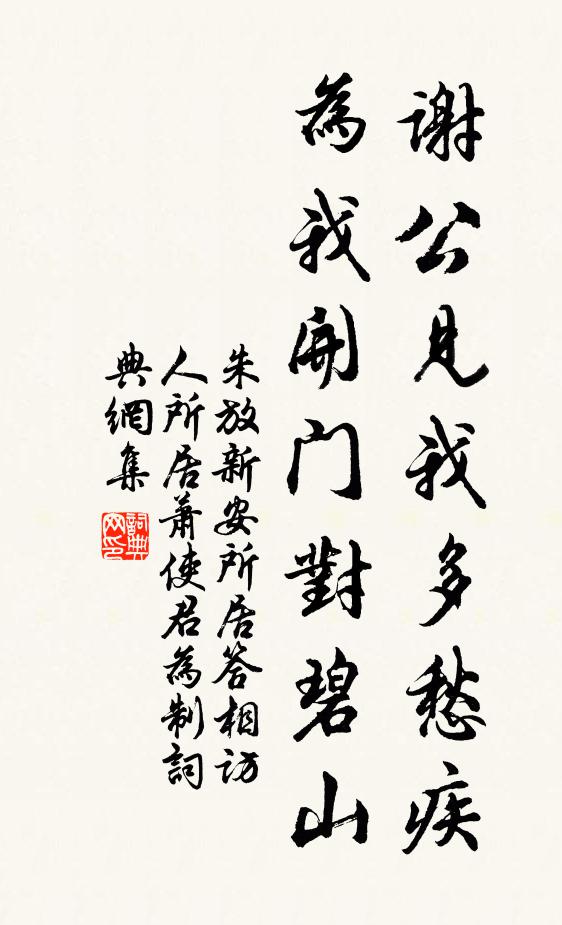 謝公見我多愁疾
為我開門對碧山
朱放新安所居答相訪
人所居蕭使君為制詞
典網集
詞典网印